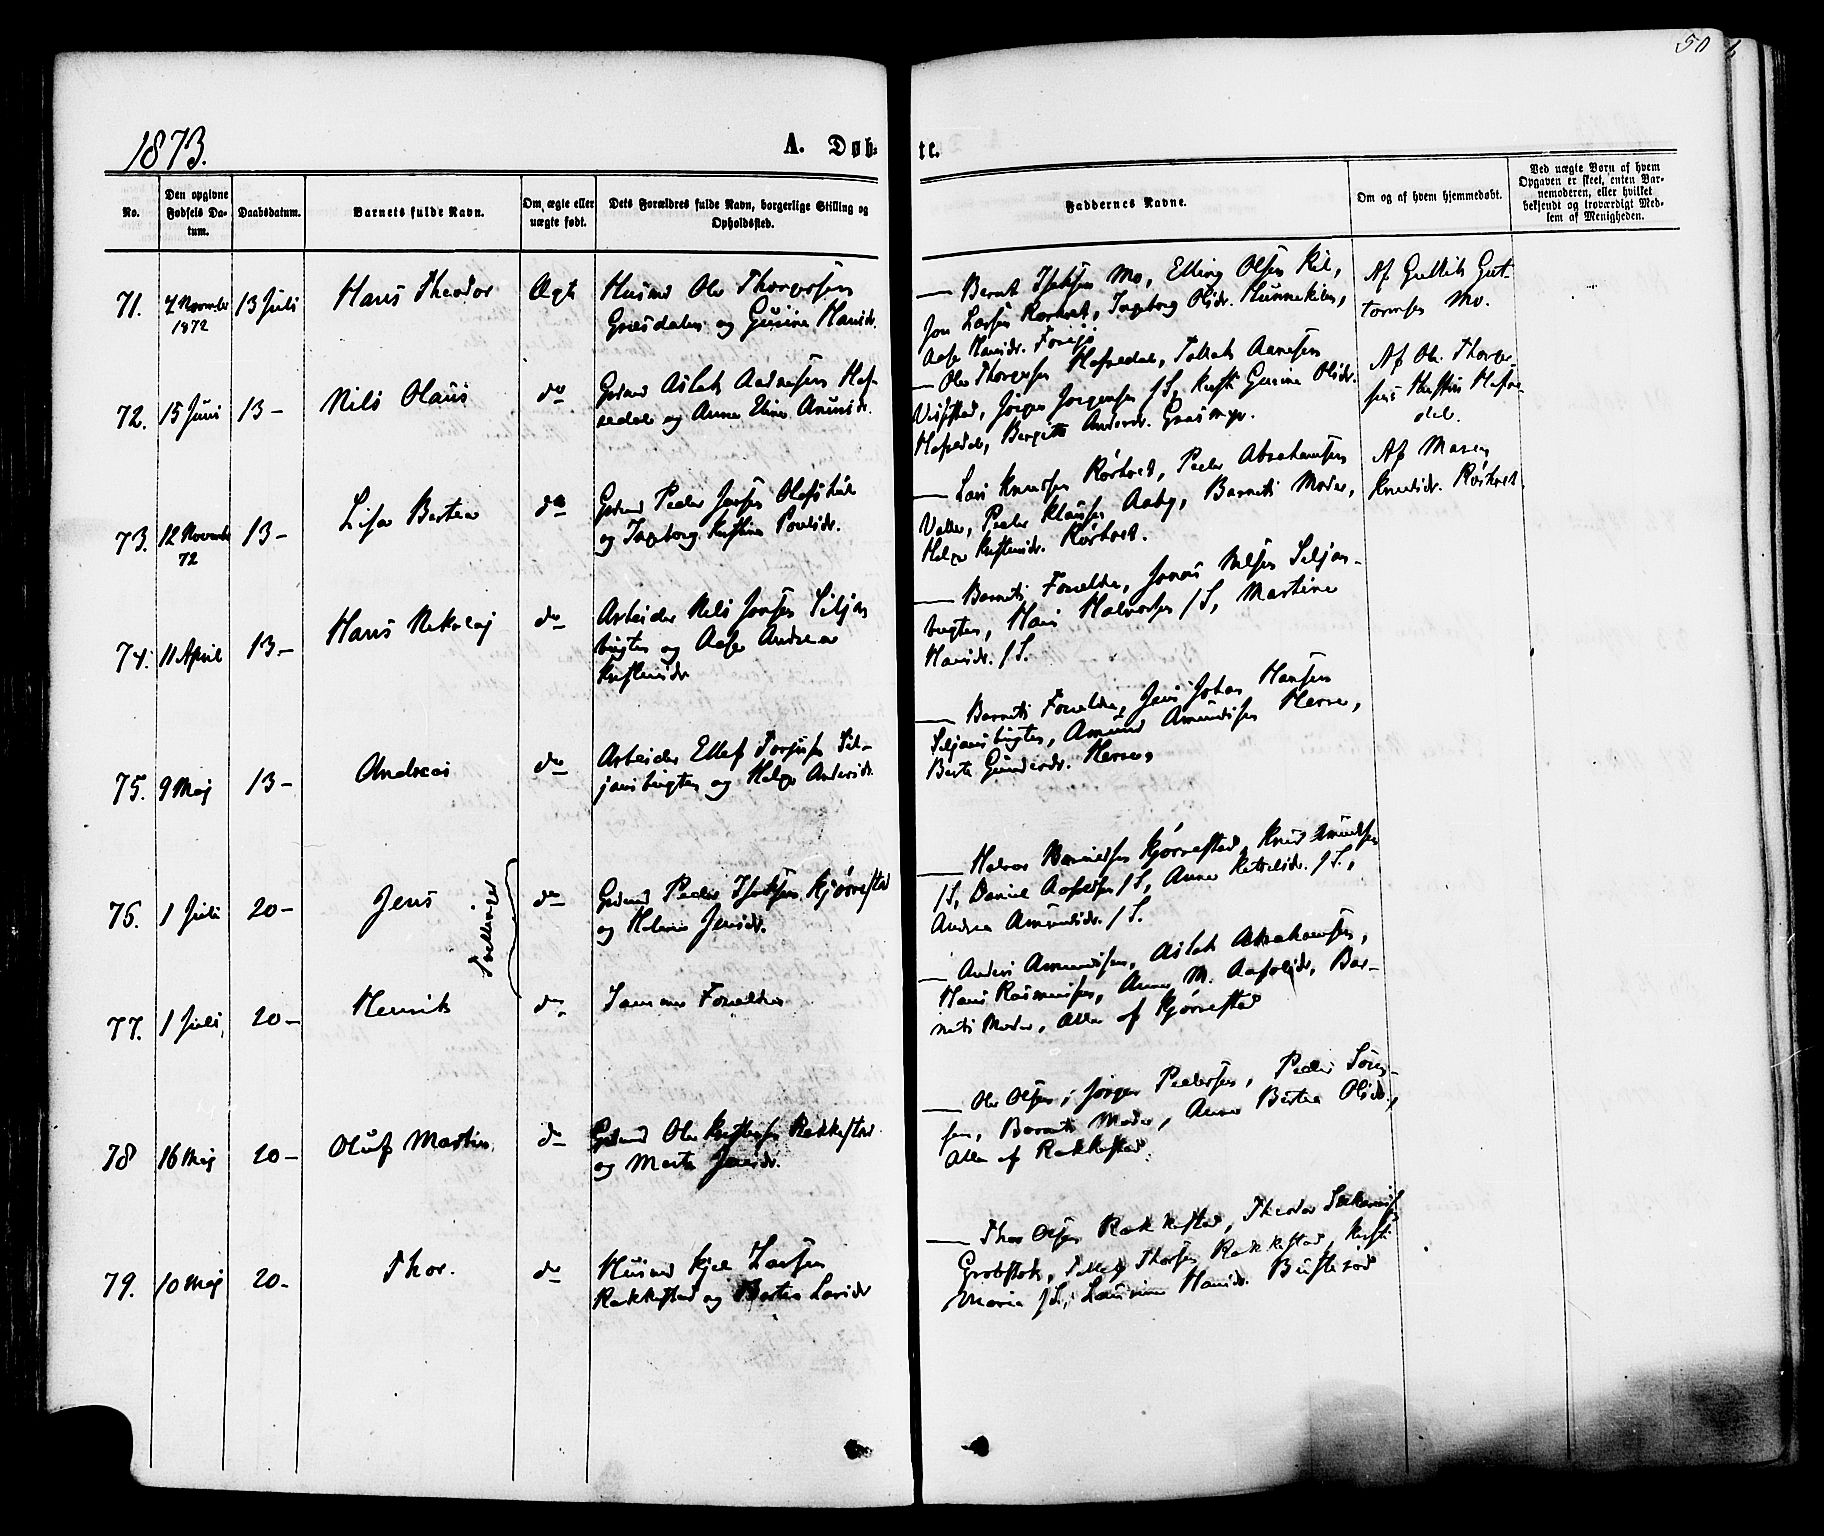 50
1873.
A. Døb-
te.
No.
Den opgivne Fødsels Da-tum.
Daabsdatum.
Barnets fulde Navn.
Om ægte eller uægte født.
Dets Forældres fulde Navn, borgerlige Stilling og Opholdssted.
Faddernes Navne.
Om og af hvem hjemmedøbt.
Ved uægte Børn af hvem Opgaven er skeet, enten Bar-nemoderen, eller hvilket bekjendt og troværdigt Med-lem af Menigheden.
71.
4 November
1872
13 Juli
Hans Theodor
Ægte
Husmd Ole Thorgersen
og Gurine Hansdr.
— Bernt Isaksen Mo, Elling Olsen Kil,
Jon Larsen Rørholt, Ingeborg Olsdr. Hunnekilen,
Aase Hansdr. Foreijs
Af Gullik Gut-
tormsen Mo.
72.
15 Juni
13 —
Nils Olaus
do
Gdmd Aslak Aadnesen Hef-
sedal og Anne Eline Amundsdr.
— Ole Thorgersen Hefsedal, Tallak Aanesen
Jørgen Jørgensen /S, Kirsti Gurine Olsdr.
Hefsedal, Bergitte Andersdr. Grasmyr.
Af Ole Thorger-
sens Hustru Hefse-
dal.
73.
12 Novembr
72
13 —
Lisa Bertea
do
Gdmd Peder Jensen
og Ingeborg Kristine Poulsdr.
— Lars Knudsen Rørholt, Peder Abrahamsen
Valler, Peder Klausen Aaby, Barnets Moder,
Helge Kristensdr. Rørholt.
Af Maren
Knudsdr. Rørholt.
74.
11 April
13 —
Hans Nikolaj
do
Arbeider Nils Jonsen Siljans
bugten og Aase Andrea
Kristensdr
— Barnets Forældre, Jonas Nilsen Siljans-
bugten, Hans Halvorsen /S, Martine
Hansdr. /S.
75.
9 Maj
13 —
Andreas
do
Arbeider Ellef Torjusen Sil-
jansbugten og Helge Andersdr.
— Barnets Forældre, Jens Johan Hansen
Siljansbugten, Amund Amundsen Herre,
Berte Gundersdr. Herre,
76.
1 Juli
20 —
Jens
Tvillinger
do
Gdmd Peder Isaksen Kjørrestad
og Helene Jensdr.
— Halvor Kjørrestad, Knud Knudsen
/S, Daniel /S, Anne Kittelsdr. /S,
Andrea Amundsdr. /S.
77.
1 Juli,
20 —
Henrik
do
Samme Forældre
— Anders Amundsen, Aslak Abrahamsen,
Hans Rasmussen, Anne M. Bar-
nets Moder, Alle af Kjørrestad
78
16 Maj
20 —
Oluf Martin.
do
Gdmd Ole Kristensen Rakkestad
og Marte Jensdr.
— Ole Olsen, Jørgen Pedersen, Peder Søren-
sen, Barnets Moder, Anne Bertea Olsdr.,
Alle af Rakkestad.
79.
10 Maj
20 —
Thor.
do
Husmd Kjel Larsen
Rakkestad og Bertea Larsdr
— Thor Olsen Rakkestad, Theodor
Grobstok, Tellef Thorsen Rakkestad, Kirsti
Maria /S, Laurine Hansdr.